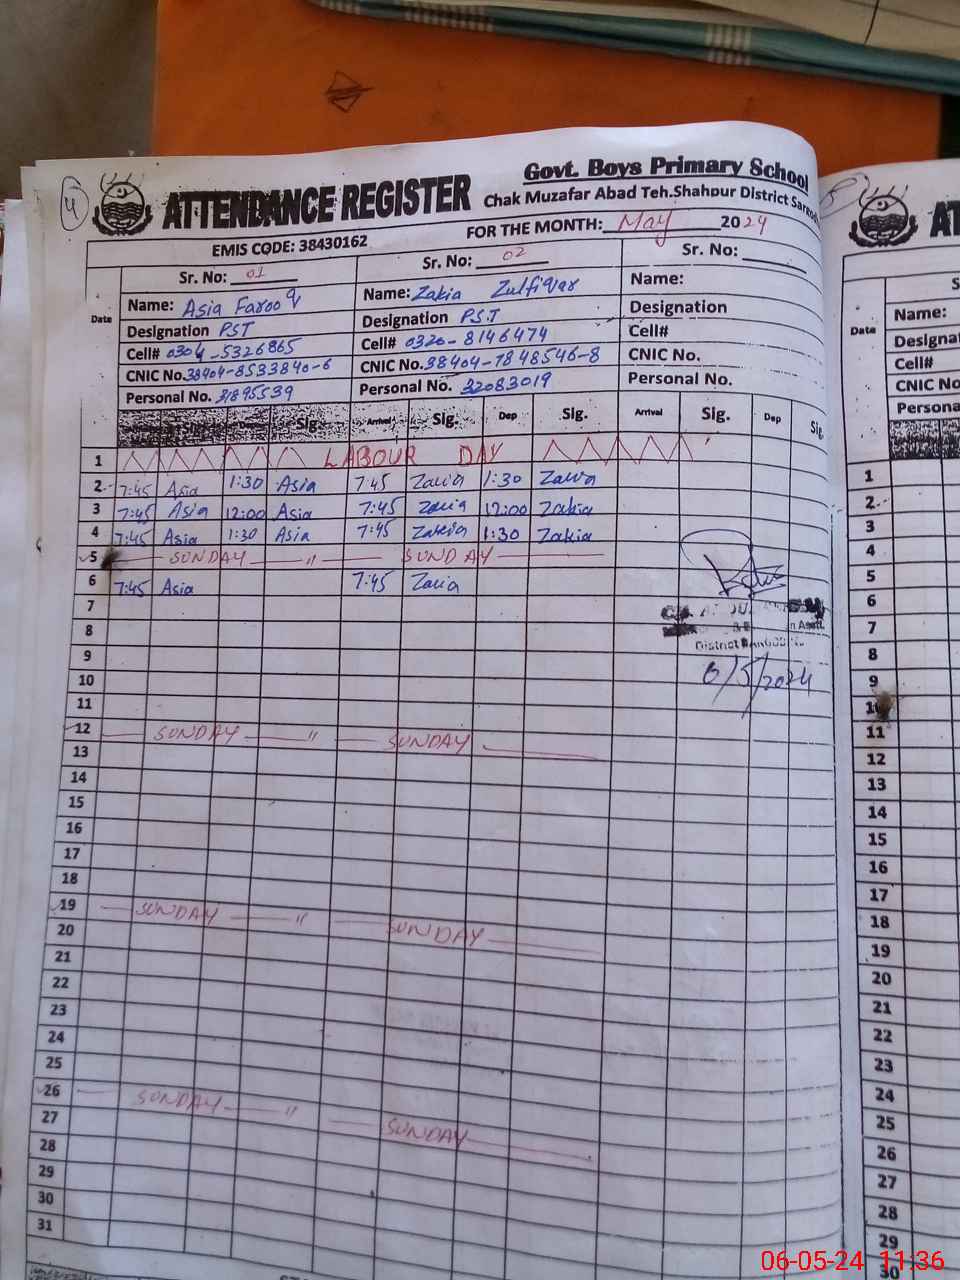 4
Govt. Boys Primary School
ATTENDANCE REGISTER
Chak Muzafar Abad Teh.Shahpur District Sargod
EMIS CODE: 38430162
FOR THE MONTH: May 2024
Date
Sr. No: 01
Sr. No: 02
Sr. No:
Name: Asia Farooq
Name: Zakia Zulfiqar
Name:
Designation PST
Designation P.S.T
Designation
Cell# 0304-5326865
Cell# 0320-8146474
Cell#
CNIC No. 38404-8533840-6
CNIC No. 38404-7848546-8
CNIC No.
Personal No. 31895539
Personal No. 32083019
Personal No.
Sig. Sig. Arrival Sig. Dep Sig. Arrival Sig. Dep Sig.
1 LABOUR DAY
2 7:45 Asia 1:30 Asia 7:45 Zakia 1:30 Zakia
3 7:45 Asia 12:00 Asia 7:45 Zakia 12:00 Zakia
4 7:45 Asia 1:30 Asia 7:45 Zakia 1:30 Zakia
5 SUNDAY " SUNDAY
6 7:45 Asia 7:45 Zakia
7
8
District SARGODHA
9
6/5/2024
10
11
12 SUNDAY " SUNDAY
13
14
15
16
17
18
19 SUNDAY " SUNDAY
20
21
22
23
24
25
26 SUNDAY " SUNDAY
27
28
29
30
31
Date
Name:
Designat
Cell#
CNIC No
Persona
1
2
3
4
5
6
7
8
9
10
11
12
13
14
15
16
17
18
19
20
21
22
23
24
25
26
27
28
29
30
06-05-24 11:36